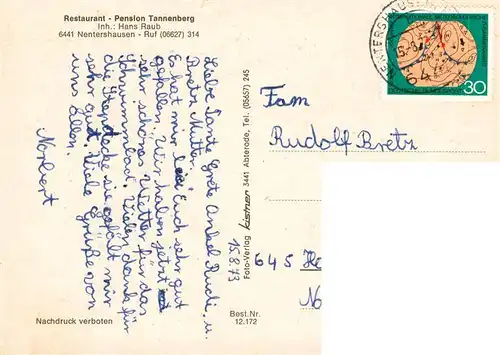 Restaurant - Pension Tannenberg
Inh.: Hans Raub
6441 Nentershausen - Ruf (06627) 314
Liebe Tante Grete Onkel Rudi, u.
Bretz Mutter.
Es hat mir bei Euch sehr gut
gefallen. Wir haben jetzt
sehr schönes Wetter für das
Schwimmbad. Vielen dank für
die Steindecke sie gefällt mir
sehr gut. Viele Grüße von
uns allen.
Norbert
15.8.73
Foto-Verlag kistner 3441 Abterode, Tel. (05657) 245
Nachdruck verboten
Best.Nr.
12.172
NENTERSHAUSEN
DEUTSCHE BUNDESPOST
30
Fam
Rudolf Bretz
645